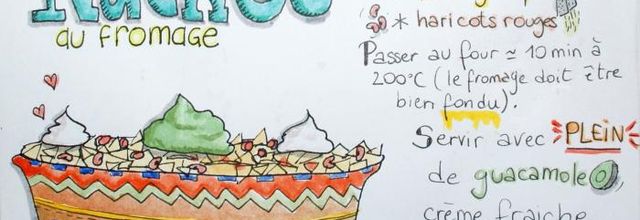 Nachos
au fromage
* haricots rouges
Passer au four ≃ 10 min à
200°C (le fromage doit être
bien fondu).
Servir avec PLEIN
de guacamole,
crème fraiche